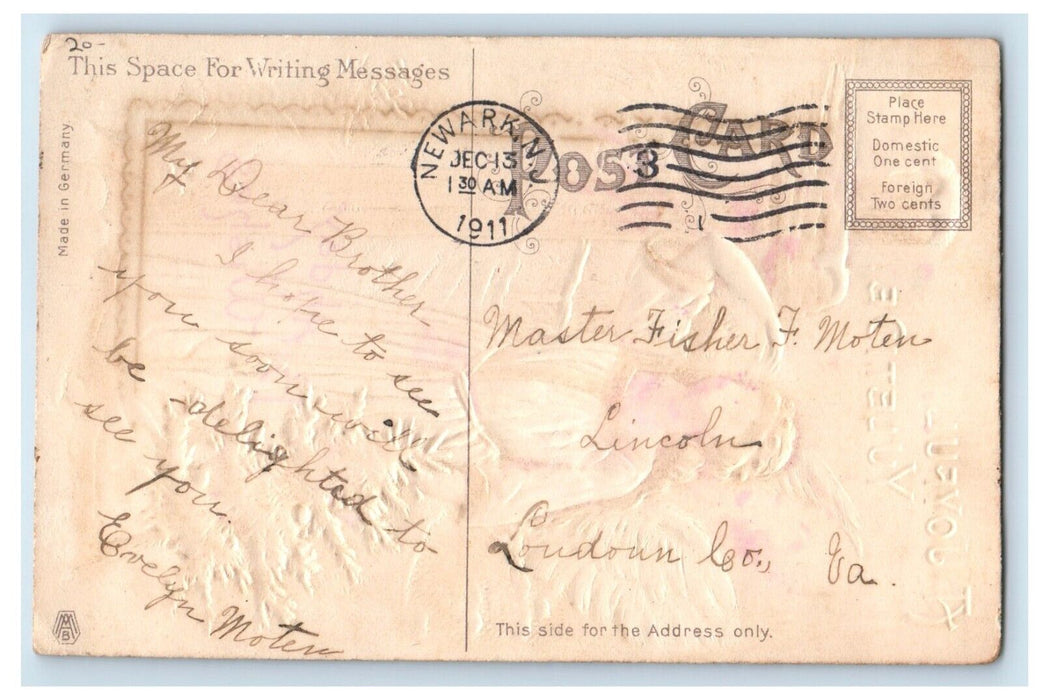 20-
This Space For Writing Messages
Made in Germany.
My Dear Brother
I hope to see
you soon will
be delighted to
see you.
Evelyn Moten
NEWARK, N.J.
DEC 13
1 30 AM
1911
POST CARD
3
Place
Stamp Here
Domestic
One cent
Foreign
Two cents
Master Fisher F. Moten
Lincoln
Loudoun Co., Va.
This side for the Address only.